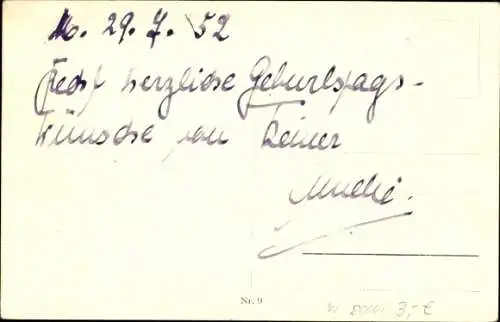 M. 29. 7. 52
Recht herzliche Geburtstags-
wünsche von Deiner
Nr. 9
3,- €